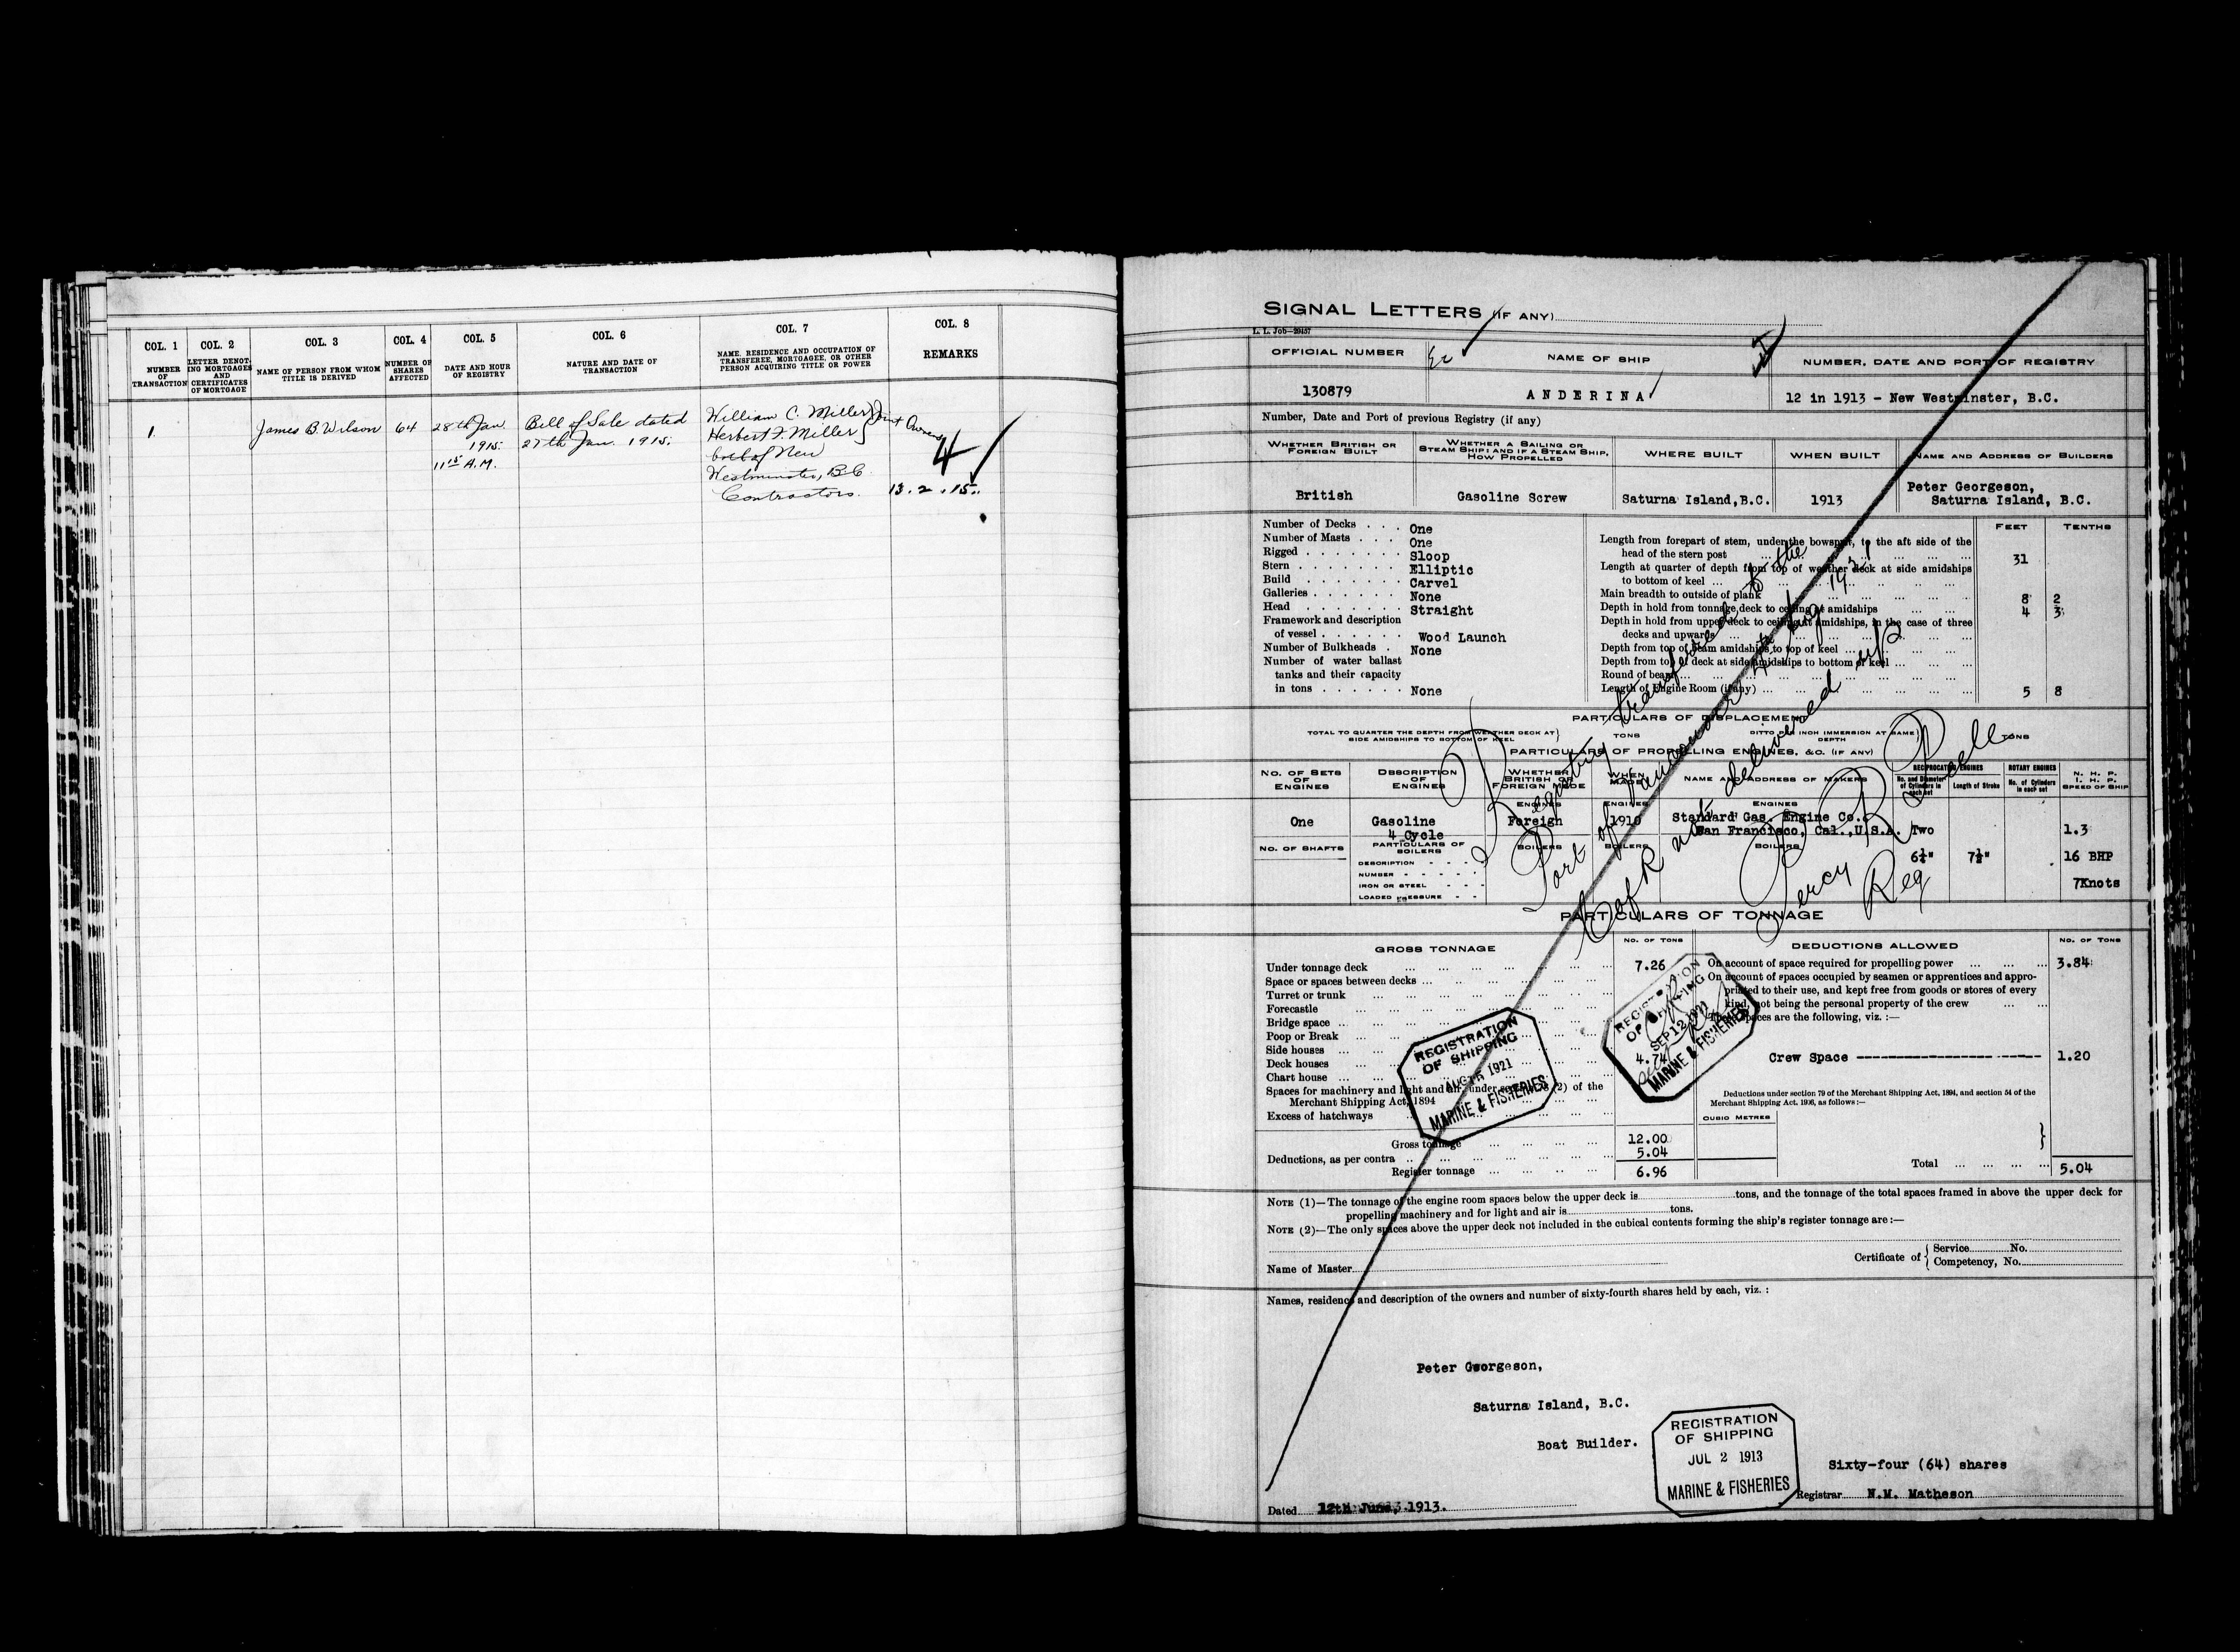 COL. 1
COL. 2
COL. 3
COL. 4
COL. 5
COL. 6
COL. 7
COL. 8
NUMBER
OF
TRANSACTION
LETTER DENOT-
ING MORTGAGES
AND
CERTIFICATES
OF MORTGAGE
NAME OF PERSON FROM WHOM
TITLE IS DERIVED
NUMBER OF
SHARES
AFFECTED
DATE AND HOUR
OF REGISTRY
NATURE AND DATE OF
TRANSACTION
NAME, RESIDENCE AND OCCUPATION OF
TRANSFEREE, MORTGAGEE, OR OTHER
PERSON ACQUIRING TITLE OR POWER
REMARKS
1.
James B. Wilson
64
28th Jan
1915.
11 15 A.M.
Bill of Sale dated
27th Jan. 1915.
William C. Miller } Joint Owners
Herbert F. Miller
both of New
Westminster, B.C.
Contractors.
4
13.2.15.
SIGNAL LETTERS (IF ANY)
L. L. Job—29457
OFFICIAL NUMBER
NAME OF SHIP
NUMBER, DATE AND PORT OF REGISTRY
130879
ANDERINA
12 in 1913 - New Westminster, B.C.
Number, Date and Port of previous Registry (if any)
WHETHER BRITISH OR
FOREIGN BUILT
WHETHER A SAILING OR
STEAM SHIP: AND IF A STEAM SHIP,
HOW PROPELLED
WHERE BUILT
WHEN BUILT
NAME AND ADDRESS OF BUILDERS
British
Gasoline Screw
Saturna Island,B.C.
1913
Peter Georgeson,
Saturna Island, B.C.
Number of Decks . . . One
Number of Masts . . . One
Rigged . . . . . . . Sloop
Stern . . . . . . . Elliptic
Build . . . . . . . Carvel
Galleries . . . . . . None
Head . . . . . . . Straight
Framework and description
of vessel . . . . . . Wood Launch
Number of Bulkheads . None
Number of water ballast
tanks and their capacity
in tons . . . . . . None
FEET
TENTHS
Length from forepart of stem, under the bowsprit, to the aft side of the
head of the stern post ... 31
Length at quarter of depth from top of weather deck at side amidships
to bottom of keel ...
Main breadth to outside of plank 8 2
Depth in hold from tonnage deck to ceiling at amidships 4 3
Depth in hold from upper deck to ceiling at amidships, in the case of three
decks and upwards
Depth from top of beam amidships to top of keel ...
Depth from top of deck at side amidships to bottom of keel ...
Round of beam ...
Length of Engine Room (if any) ... 5 8
PARTICULARS OF DISPLACEMENT
TOTAL TO QUARTER THE DEPTH FROM WEATHER DECK AT
SIDE AMIDSHIPS TO BOTTOM OF KEEL
TONS
DITTO PER INCH IMMERSION AT SAME
DEPTH
TONS
PARTICULARS OF PROPELLING ENGINES, &C. (IF ANY)
NO. OF SETS
OF
ENGINES
DESCRIPTION
OF
ENGINES
WHETHER
BRITISH OR
FOREIGN MADE
WHEN
MADE
NAME AND ADDRESS OF MAKERS
RECIPROCATING ENGINES
No. and Diameter
of Cylinders in
each set
Length of Stroke
ROTARY ENGINES
No. of Cylinders
in each set
N. H. P.
I. H. P.
SPEED OF SHIP
ENGINES
ENGINES
ENGINES
One
Gasoline
4 Cycle
Foreign
1910
Standard Gas Engine Co.
San Francisco, Cal.,U.S.A.
Two
1.3
NO. OF SHAFTS
PARTICULARS OF
BOILERS
BOILERS
BOILERS
BOILERS
6¼"
7½"
16 BHP
7Knots
DESCRIPTION
NUMBER
IRON OR STEEL
LOADED PRESSURE
Registry transferred to the
Port of Vancouver 4th Aug 1921
C of R not delivered up
Percy R Peele
Reg
PARTICULARS OF TONNAGE
GROSS TONNAGE
NO. OF TONS
DEDUCTIONS ALLOWED
NO. OF TONS
Under tonnage deck ... 7.26
Space or spaces between decks ...
Turret or trunk ...
Forecastle ...
Bridge space ...
Poop or Break ...
Side houses ...
Deck houses ... 4.74
Chart house ...
Spaces for machinery and light and air, under section (2) of the
Merchant Shipping Act, 1894
Excess of hatchways
Gross tonnage ... 12.00
Deductions, as per contra ... 5.04
Register tonnage ... 6.96
On account of space required for propelling power ... 3.84
On account of spaces occupied by seamen or apprentices and appro-
priated to their use, and kept free from goods or stores of every
kind, not being the personal property of the crew ...
These spaces are the following, viz. :—
Crew Space ---------- 1.20
Deductions under section 79 of the Merchant Shipping Act, 1894, and section 54 of the
Merchant Shipping Act, 1906, as follows :—
CUBIC METRES
Total ... 5.04
REGISTRATION
OF SHIPPING
AUG 1921
MARINE & FISHERIES
REGISTRATION
OF SHIPPING
SEP 12 1921
MARINE & FISHERIES
NOTE (1)—The tonnage of the engine room spaces below the upper deck is ... tons, and the tonnage of the total spaces framed in above the upper deck for
propelling machinery and for light and air is ... tons.
NOTE (2)—The only spaces above the upper deck not included in the cubical contents forming the ship's register tonnage are :—
Name of Master
Certificate of { Service No.
Competency, No.
Names, residence and description of the owners and number of sixty-fourth shares held by each, viz. :
Peter Georgeson,
Saturna Island, B.C.
Boat Builder.
REGISTRATION
OF SHIPPING
JUL 2 1913
MARINE & FISHERIES
Sixty-four (64) shares
Dated 12th June, 1913.
Registrar N.M. Matheson